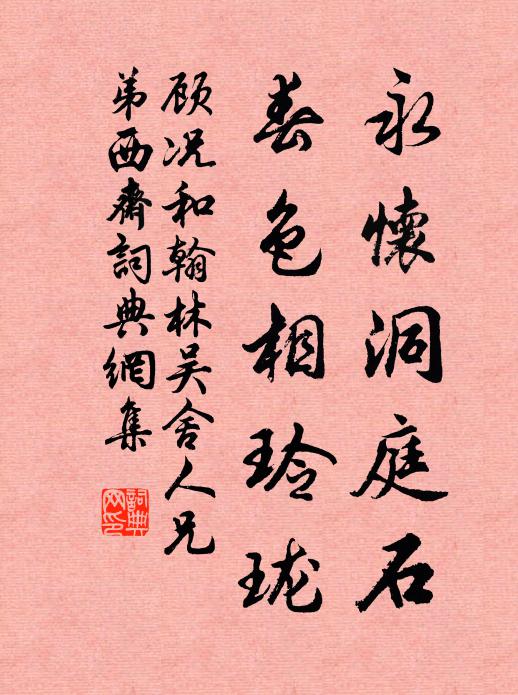 永懷洞庭石
春色相玲珑
顾况和翰林吴舍人兄
弟西齋詞典網集
詞典
网印